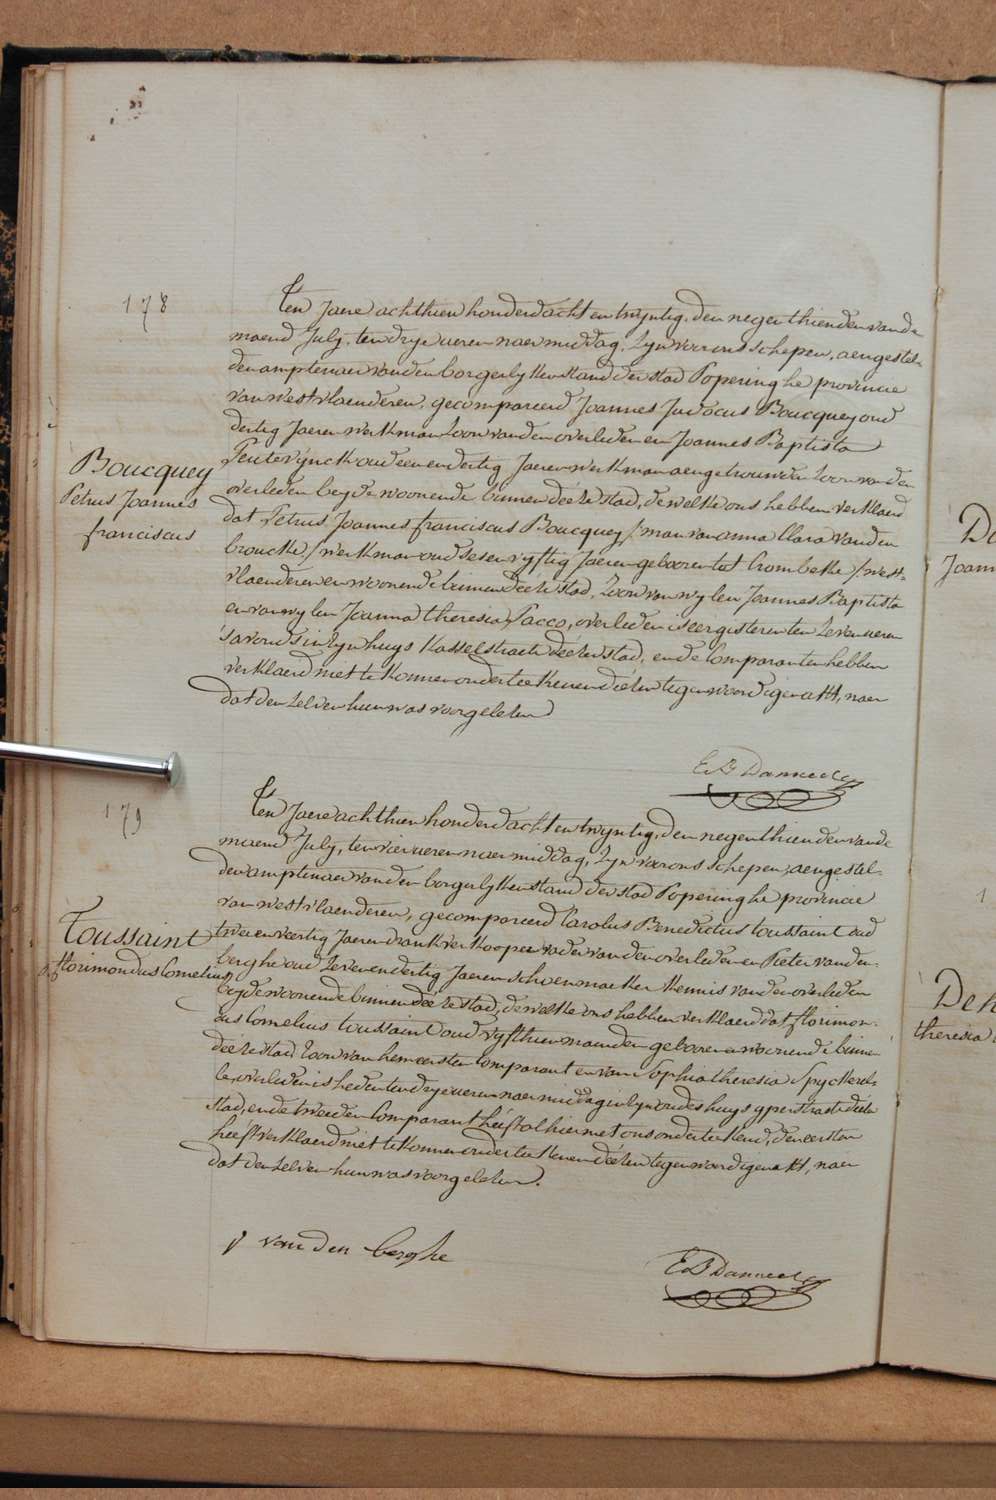 178
Ten Jaere achthien honderd acht en twyntig, den negenthienden van de
maend July, ten drye ueren naermiddag, Zyn voor ons schepen, aengestel-
den amptenaer van den borgerlyken stand der stad Poperinghe provincie
van westvlaenderen, gecompareerd Joannes Judocus Boucquey oud
dertig Jaeren werkman Zoon van den overleden en Joannes Baptista
Peuterynck oud een en dertig Jaeren werkman aengetrouwden Zoon van den
overleden beyde woonende binnen deéze stad, dewelke ons hebben verklaerd
Boucquey
Petrus Joannes
franciscus
dat Petrus Joannes franciscus Boucquey / man van anna Clara vanden
broucke / werkman oud sesenvyftig Jaeren gebooren tot Crombeke / west-
vlaenderen en woonende binnen deéze stad, Zoon van wylen Joannes Baptista
en van wylen Joanna theresia Pacco, overleden is eergisteren ten Zeven ueren
s'avonds in Zyn huys Kasselstraete deéze stad, en de Comparanten hebben
verklaerd niet te konnen onderteekenen deézen tegenwoordigen akt, naer
dat den Zelven hun was voorgelezen
E B Danneel
179
Ten Jaere achthien honderd acht en twyntig, den negenthienden van de
maend July, ten vier ueren naermiddag, Zyn voor ons schepen, aengestel-
den amptenaer van den borgerlyken stand der stad Poperinghe provincie
van westvlaenderen, gecompareerd Carolus Benedictus toussaint oud
twee en veertig Jaeren drankverkooper vader van den overleden en Pieter vanden-
berghe oud Zeven en dertig Jaeren schoenmaeker kennis van den overleden
Toussaint
florimondus Cornelius
beyde woonende binnen deéze stad, dewelke ons hebben verklaerd dat florimon-
dus Cornelius toussaint oud vyfthien maenden gebooren en woonende binnen
deéze stad Zoon van hem eersten Comparant en van Sophia theresia
overleden is heden ten drye ueren naermiddag in Zyn ouders huys yperstraete deéze
stad, en de tweeden Comparant héeft alhier met ons onderteekend, den eersten
héeft verklaerd niet te konnen onderteekenen deézen tegenwoordigen akt, naer
dat den Zelven hun was voorgelezen.
p van den berghe
E B Danneel
De
Joann
De K
theresia